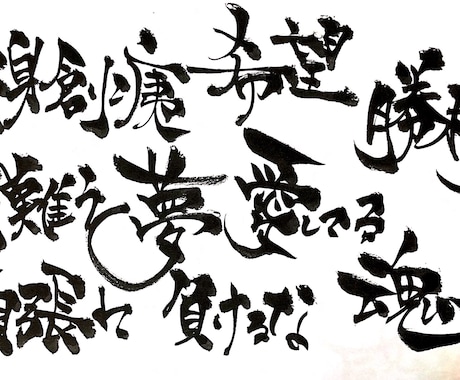 身創痍 希望 勝
難う 夢 愛してる
張れ 負けるな 魂